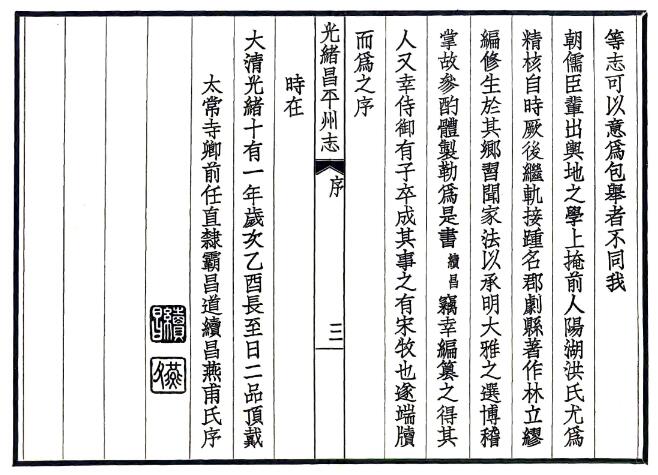 等志可以意爲包舉者不同我
朝儒臣輩出輿地之學上掩前人陽湖洪氏尤爲
精核自時厥後繼軌接踵名郡劇縣著作林立繆
編修生於其鄉習聞家法以承明大雅之選博稽
掌故參酌體製勒爲是書續昌竊幸編篡之得其
人又幸侍御有子卒成其事之有宋牧也遂端牘
而爲之序
光緒昌平州志 序 三
時在
大清光緒十有一年歲次乙酉長至日二品頂戴
太常寺卿前任直隸霸昌道續昌燕甫氏序
續昌
燕